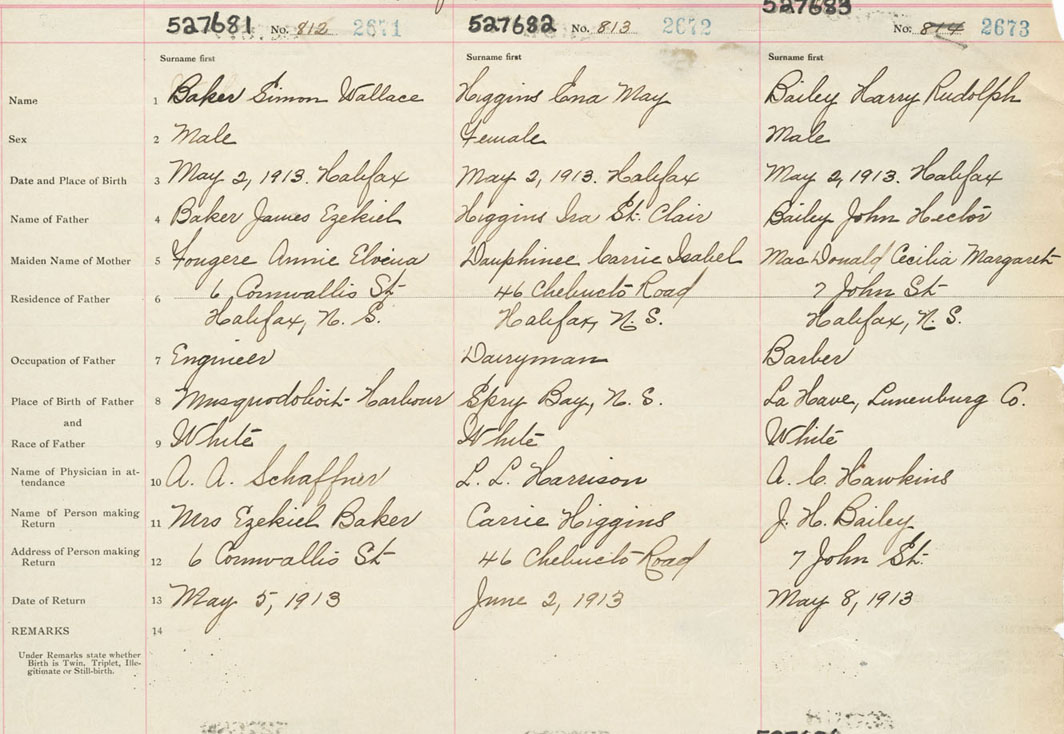 527681 No. 812 2671 527682 No. 813 2672 527683 No. 814 2673
Surname first Surname first Surname first
Name 1 Baker Simon Wallace Higgins Ena May Bailey Harry Rudolph
Sex 2 Male Female Male
Date and Place of Birth 3 May 2, 1913. Halifax May 2, 1913. Halifax May 2, 1913. Halifax
Name of Father 4 Baker James Ezekiel Higgins Ira St. Clair Bailey John Hector
Maiden Name of Mother 5 Fougere Annie Elvena Dauphinee Carrie Isabel MacDonald Cecilia Margaret
Residence of Father 6 6 Cornwallis St 46 Chebucto Road 7 John St
Halifax, N. S. Halifax, N. S. Halifax, N. S.
Occupation of Father 7 Engineer Dairyman Barber
Place of Birth of Father 8 Musquodoboit Harbour Spry Bay, N. S. La Have, Lunenburg Co.
and
Race of Father 9 White White White
Name of Physician in at-
tendance 10 A. A. Schaffner L. L. Harrison A. C. Hawkins
Name of Person making
Return 11 Mrs Ezekiel Baker Carrie Higgins J. H. Bailey
Address of Person making
Return 12 6 Cornwallis St 46 Chebucto Road 7 John St.
Date of Return 13 May 5, 1913 June 2, 1913 May 8, 1913
REMARKS 14
Under Remarks state whether
Birth is Twin, Triplet, Ille-
gitimate or Still-birth.